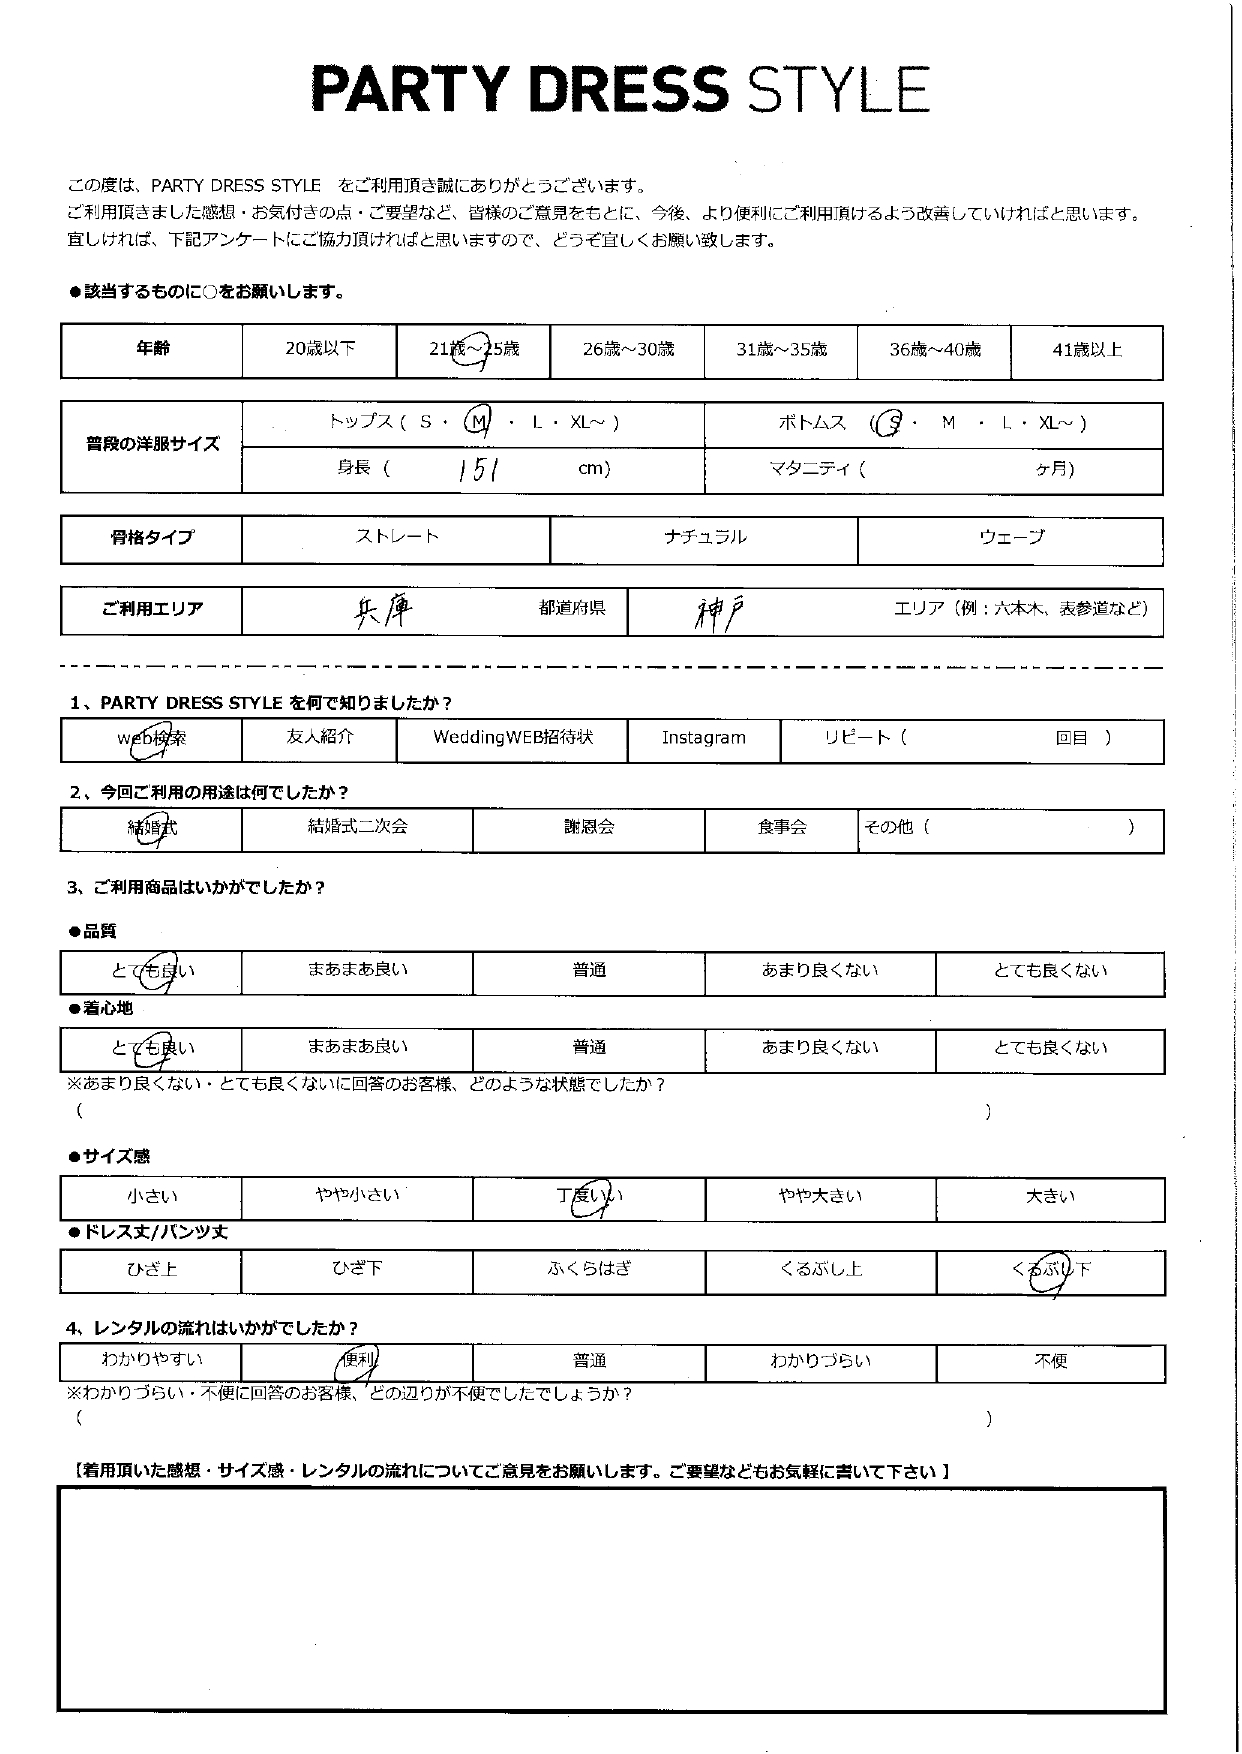 PARTY DRESS STYLE
この度は、PARTY DRESS STYLE　をご利用頂き誠にありがとうございます。
ご利用頂きました感想・お気付きの点・ご要望など、皆様のご意見をもとに、今後、より便利にご利用頂けるよう改善していければと思います。
宜しければ、下記アンケートにご協力頂ければと思いますので、どうぞ宜しくお願い致します。
●該当するものに○をお願いします。
年齢 20歳以下 21歳～25歳 26歳～30歳 31歳～35歳 36歳～40歳 41歳以上
普段の洋服サイズ トップス ( S ・ M ・ L ・ XL～ ) ボトムス ( S ・ M ・ L ・ XL～ )
身長 ( 151 cm) マタニティ ( ヶ月)
骨格タイプ ストレート ナチュラル ウェーブ
ご利用エリア 兵庫 都道府県 神戸 エリア（例：六本木、表参道など）
1、PARTY DRESS STYLE を何で知りましたか？
web検索 友人紹介 WeddingWEB招待状 Instagram リピート（ 回目 ）
2、今回ご利用の用途は何でしたか？
結婚式 結婚式二次会 謝恩会 食事会 その他（ ）
3、ご利用商品はいかがでしたか？
●品質
とても良い まあまあ良い 普通 あまり良くない とても良くない
●着心地
とても良い まあまあ良い 普通 あまり良くない とても良くない
※あまり良くない・とても良くないに回答のお客様、どのような状態でしたか？
（ ）
●サイズ感
小さい やや小さい 丁度いい やや大きい 大きい
●ドレス丈/パンツ丈
ひざ上 ひざ下 ふくらはぎ くるぶし上 くるぶし下
4、レンタルの流れはいかがでしたか？
わかりやすい 便利 普通 わかりづらい 不便
※わかりづらい・不便に回答のお客様、どの辺りが不便でしたでしょうか？
（ ）
【着用頂いた感想・サイズ感・レンタルの流れについてご意見をお願いします。ご要望などもお気軽に書いて下さい 】